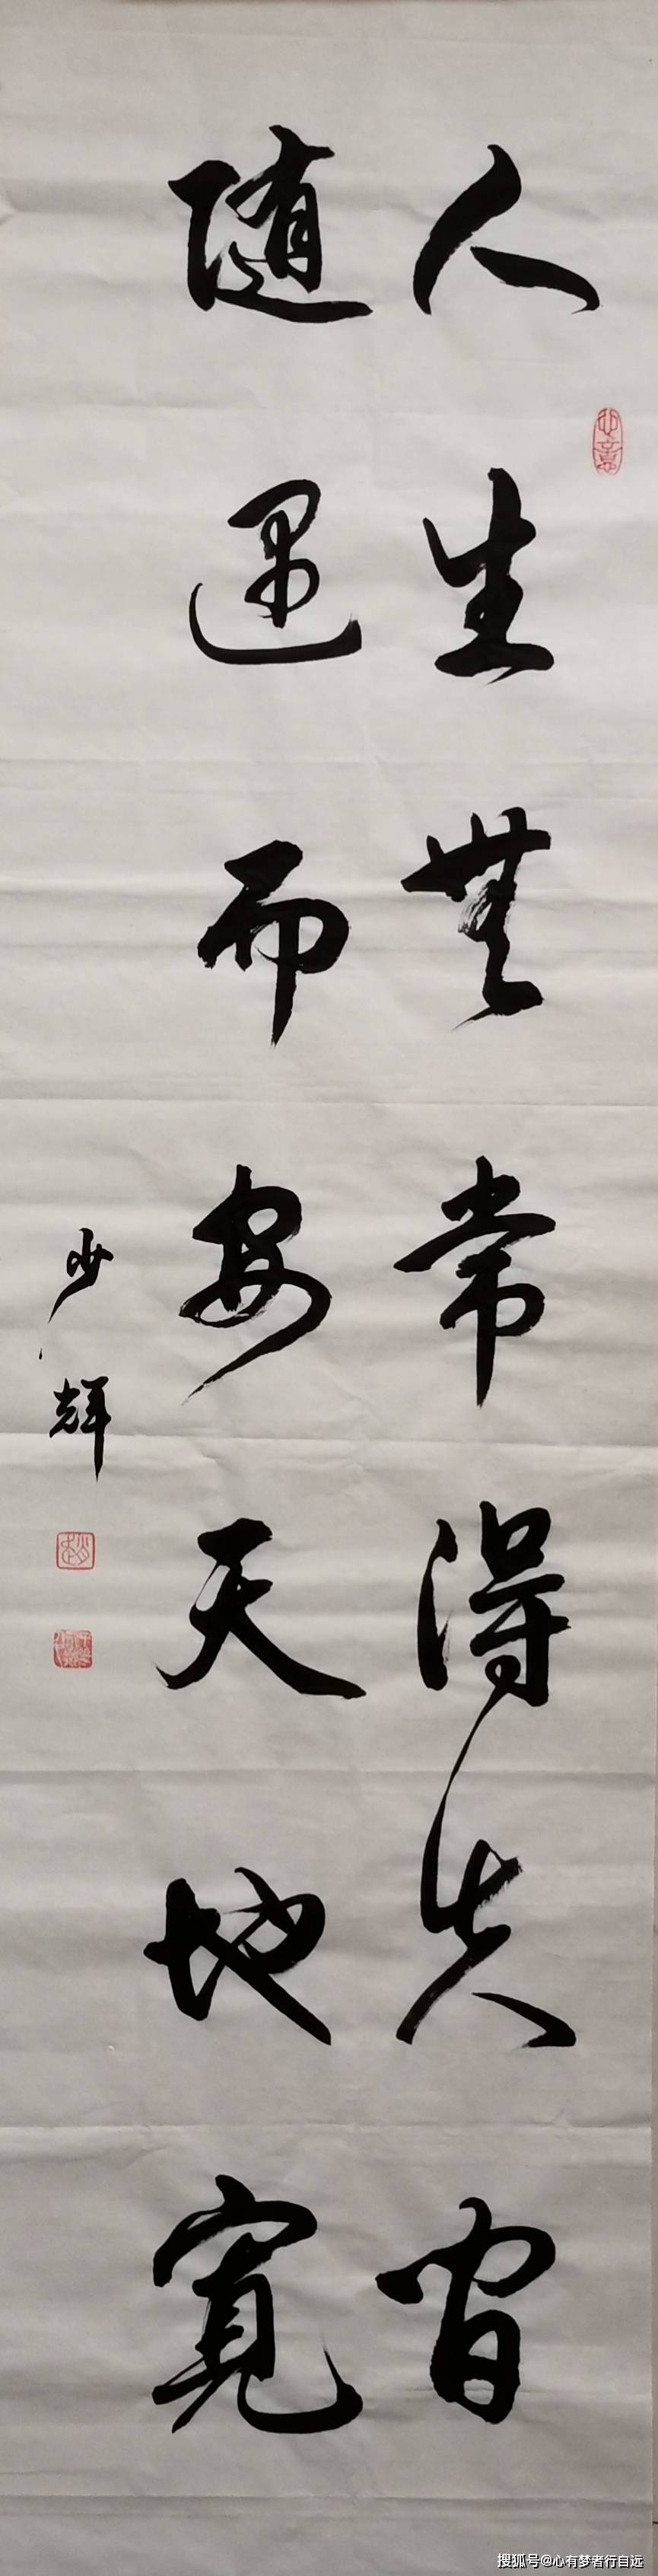 人生無常得失間
随遇而安天地寬
少輝
搜狐号@心有梦者行自远